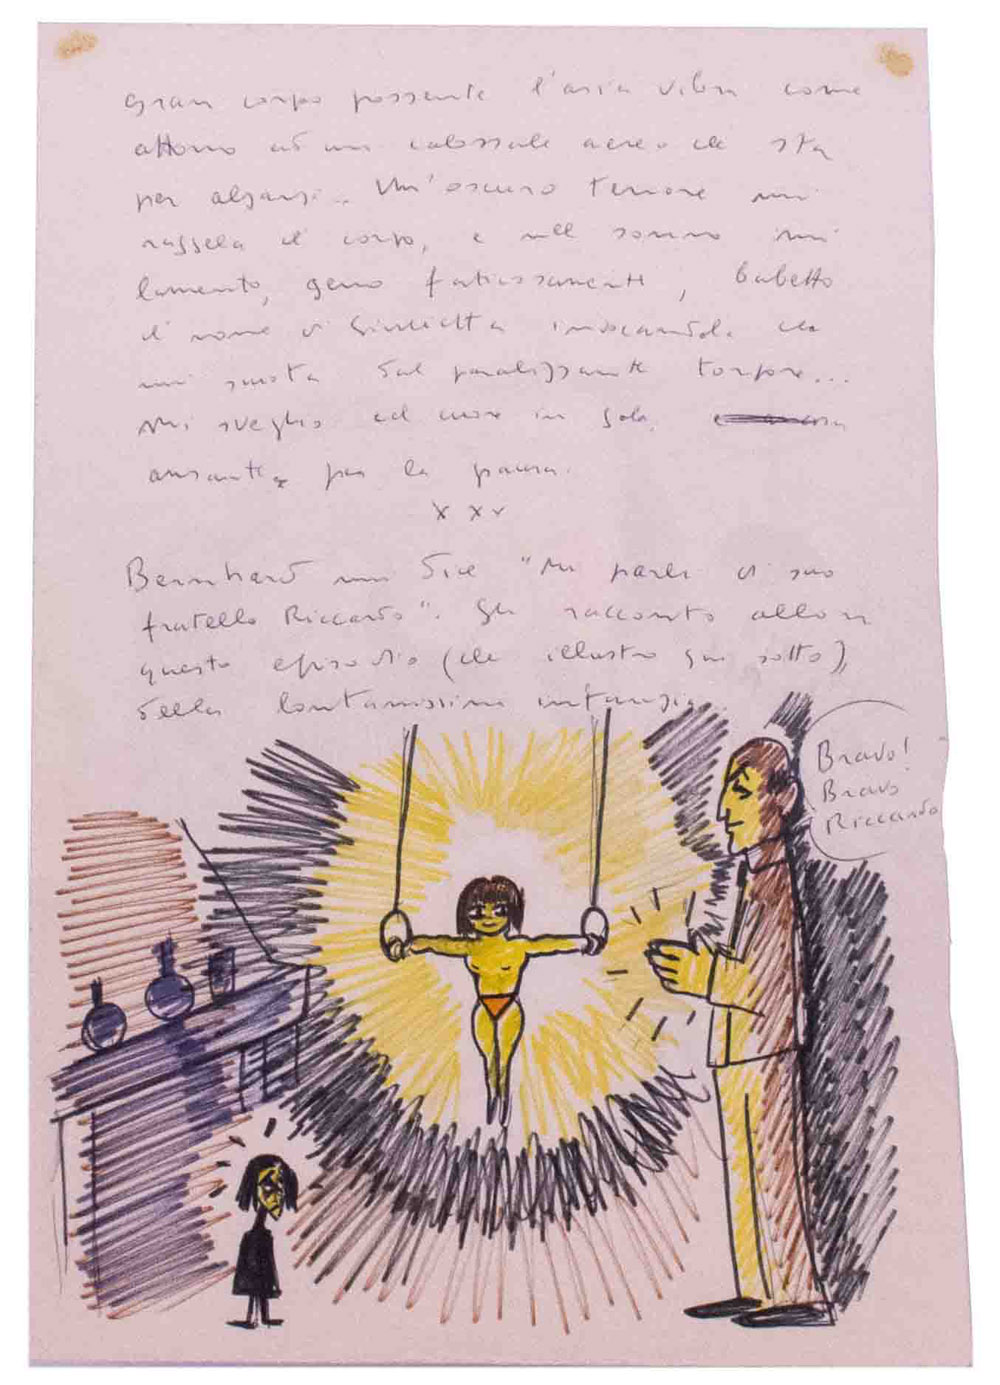 gran corpo possente l'aria vibra come
attorno ad un colossale aereo che sta
per alzarsi.. Un'oscuro terrore mi
raggela il corpo, e nel sonno mi
lamento, gemo faticosamente, balbetto
il nome di Giulietta invocandola che
mi scuota dal paralizzante torpore...
Mi sveglio col cuore in gola,
ansante per la paura.
x x x
Bernhard mi dice "Mi parli di suo
fratello Riccardo". Gli racconto allora
questo episodio (che illustro qui sotto),
della lontanissima infanzia.
Bravo!
Bravo
Riccardo